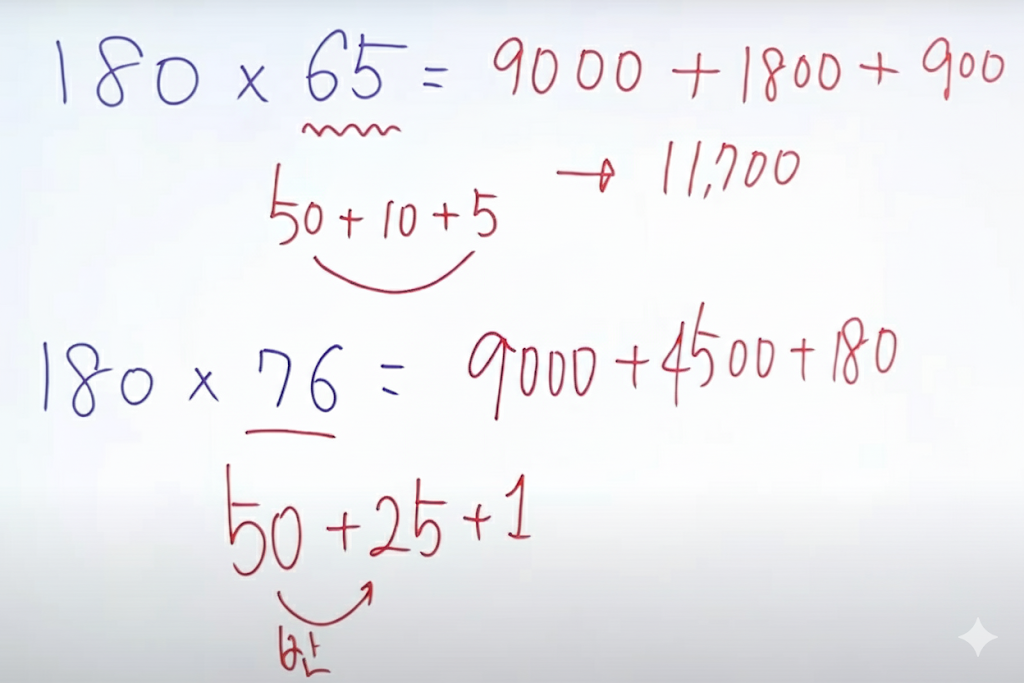 180 × 65 = 9000 + 1800 + 900
50 + 10 + 5 → 11,700
180 × 76 = 9000 + 4500 + 180
50 + 25 + 1
반